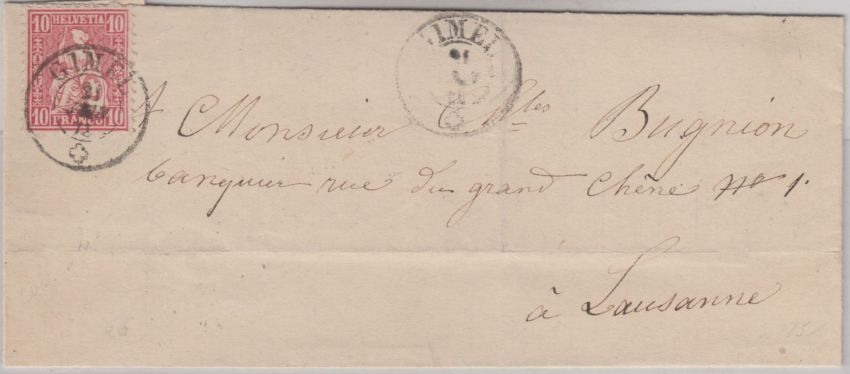 10 HELVETIA 10
10 FRANCO 10
GIMEL
21
GIMEL
21
A Monsieur Chles Bugnion
banquier rue du grand Chêne No 1.
à Lausanne